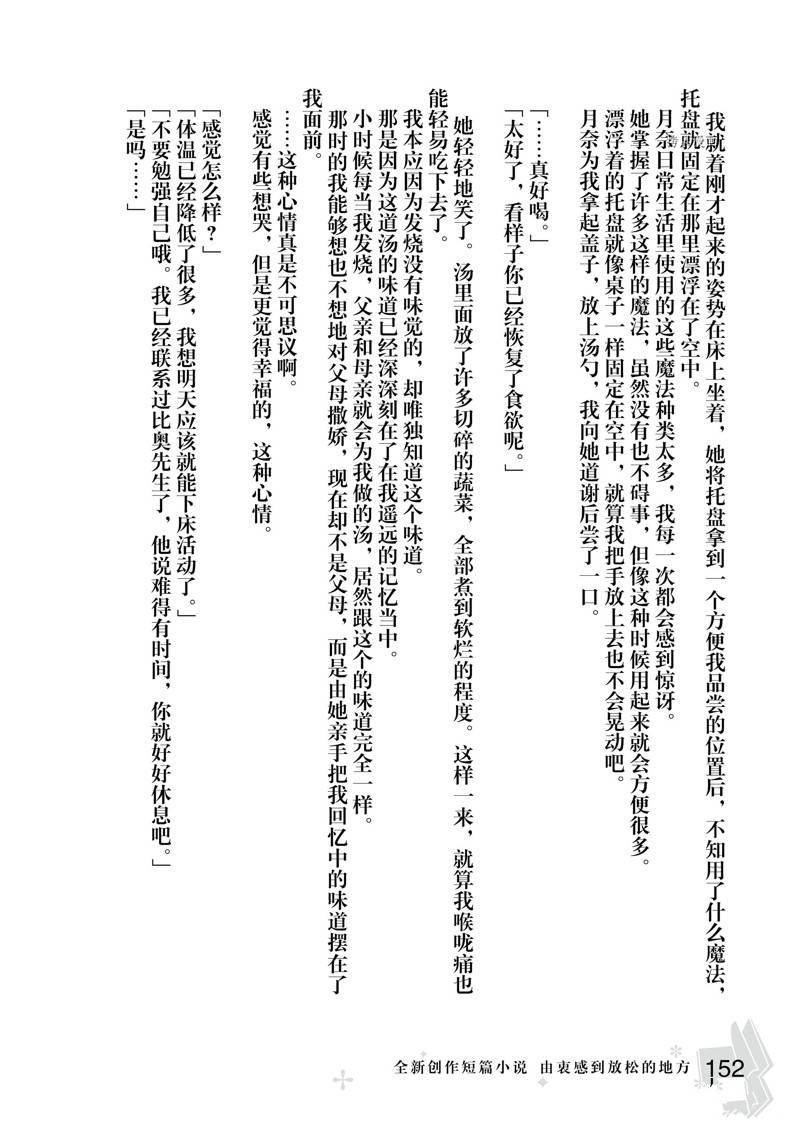 我就着刚才起来的姿势在床上坐着，她将托盘拿到一个方便我品尝的位置后，不知用了什么魔法，
托盘就固定在那里漂浮在了空中。
月奈日常生活里使用的这些魔法种类太多，我每一次都会感到惊讶。
她掌握了许多这样的魔法，虽然没有也不碍事，但像这种时候用起来就会方便很多。
漂浮着的托盘就像桌子一样固定在空中，就算我把手放上去也不会晃动吧。
月奈为我拿起盖子，放上汤勺，我向她道谢后尝了一口。
「……真好喝。」
「太好了，看样子你已经恢复了食欲呢。」
她轻轻地笑了。汤里面放了许多切碎的蔬菜，全部煮到软烂的程度。这样一来，就算我喉咙痛也
能轻易吃下去了。
我本应因为发烧没有味觉的，却唯独知道这个味道。
那是因为这道汤的味道已经深深刻在了在我遥远的记忆当中。
小时候每当我发烧，父亲和母亲就会为我做的汤，居然跟这个的味道完全一样。
那时的我能够想也不想地对父母撒娇，现在却不是父母，而是由她亲手把我回忆中的味道摆在了
我面前。
……这种心情真是不可思议啊。
感觉有些想哭，但是更觉得幸福的，这种心情。
「感觉怎么样？」
「体温已经降低了很多，我想明天应该就能下床活动了。」
「不要勉强自己哦。我已经联系过比奥先生了，他说难得有时间，你就好好休息吧。」
「是吗……」
全新创作短篇小说 由衷感到放松的地方
152